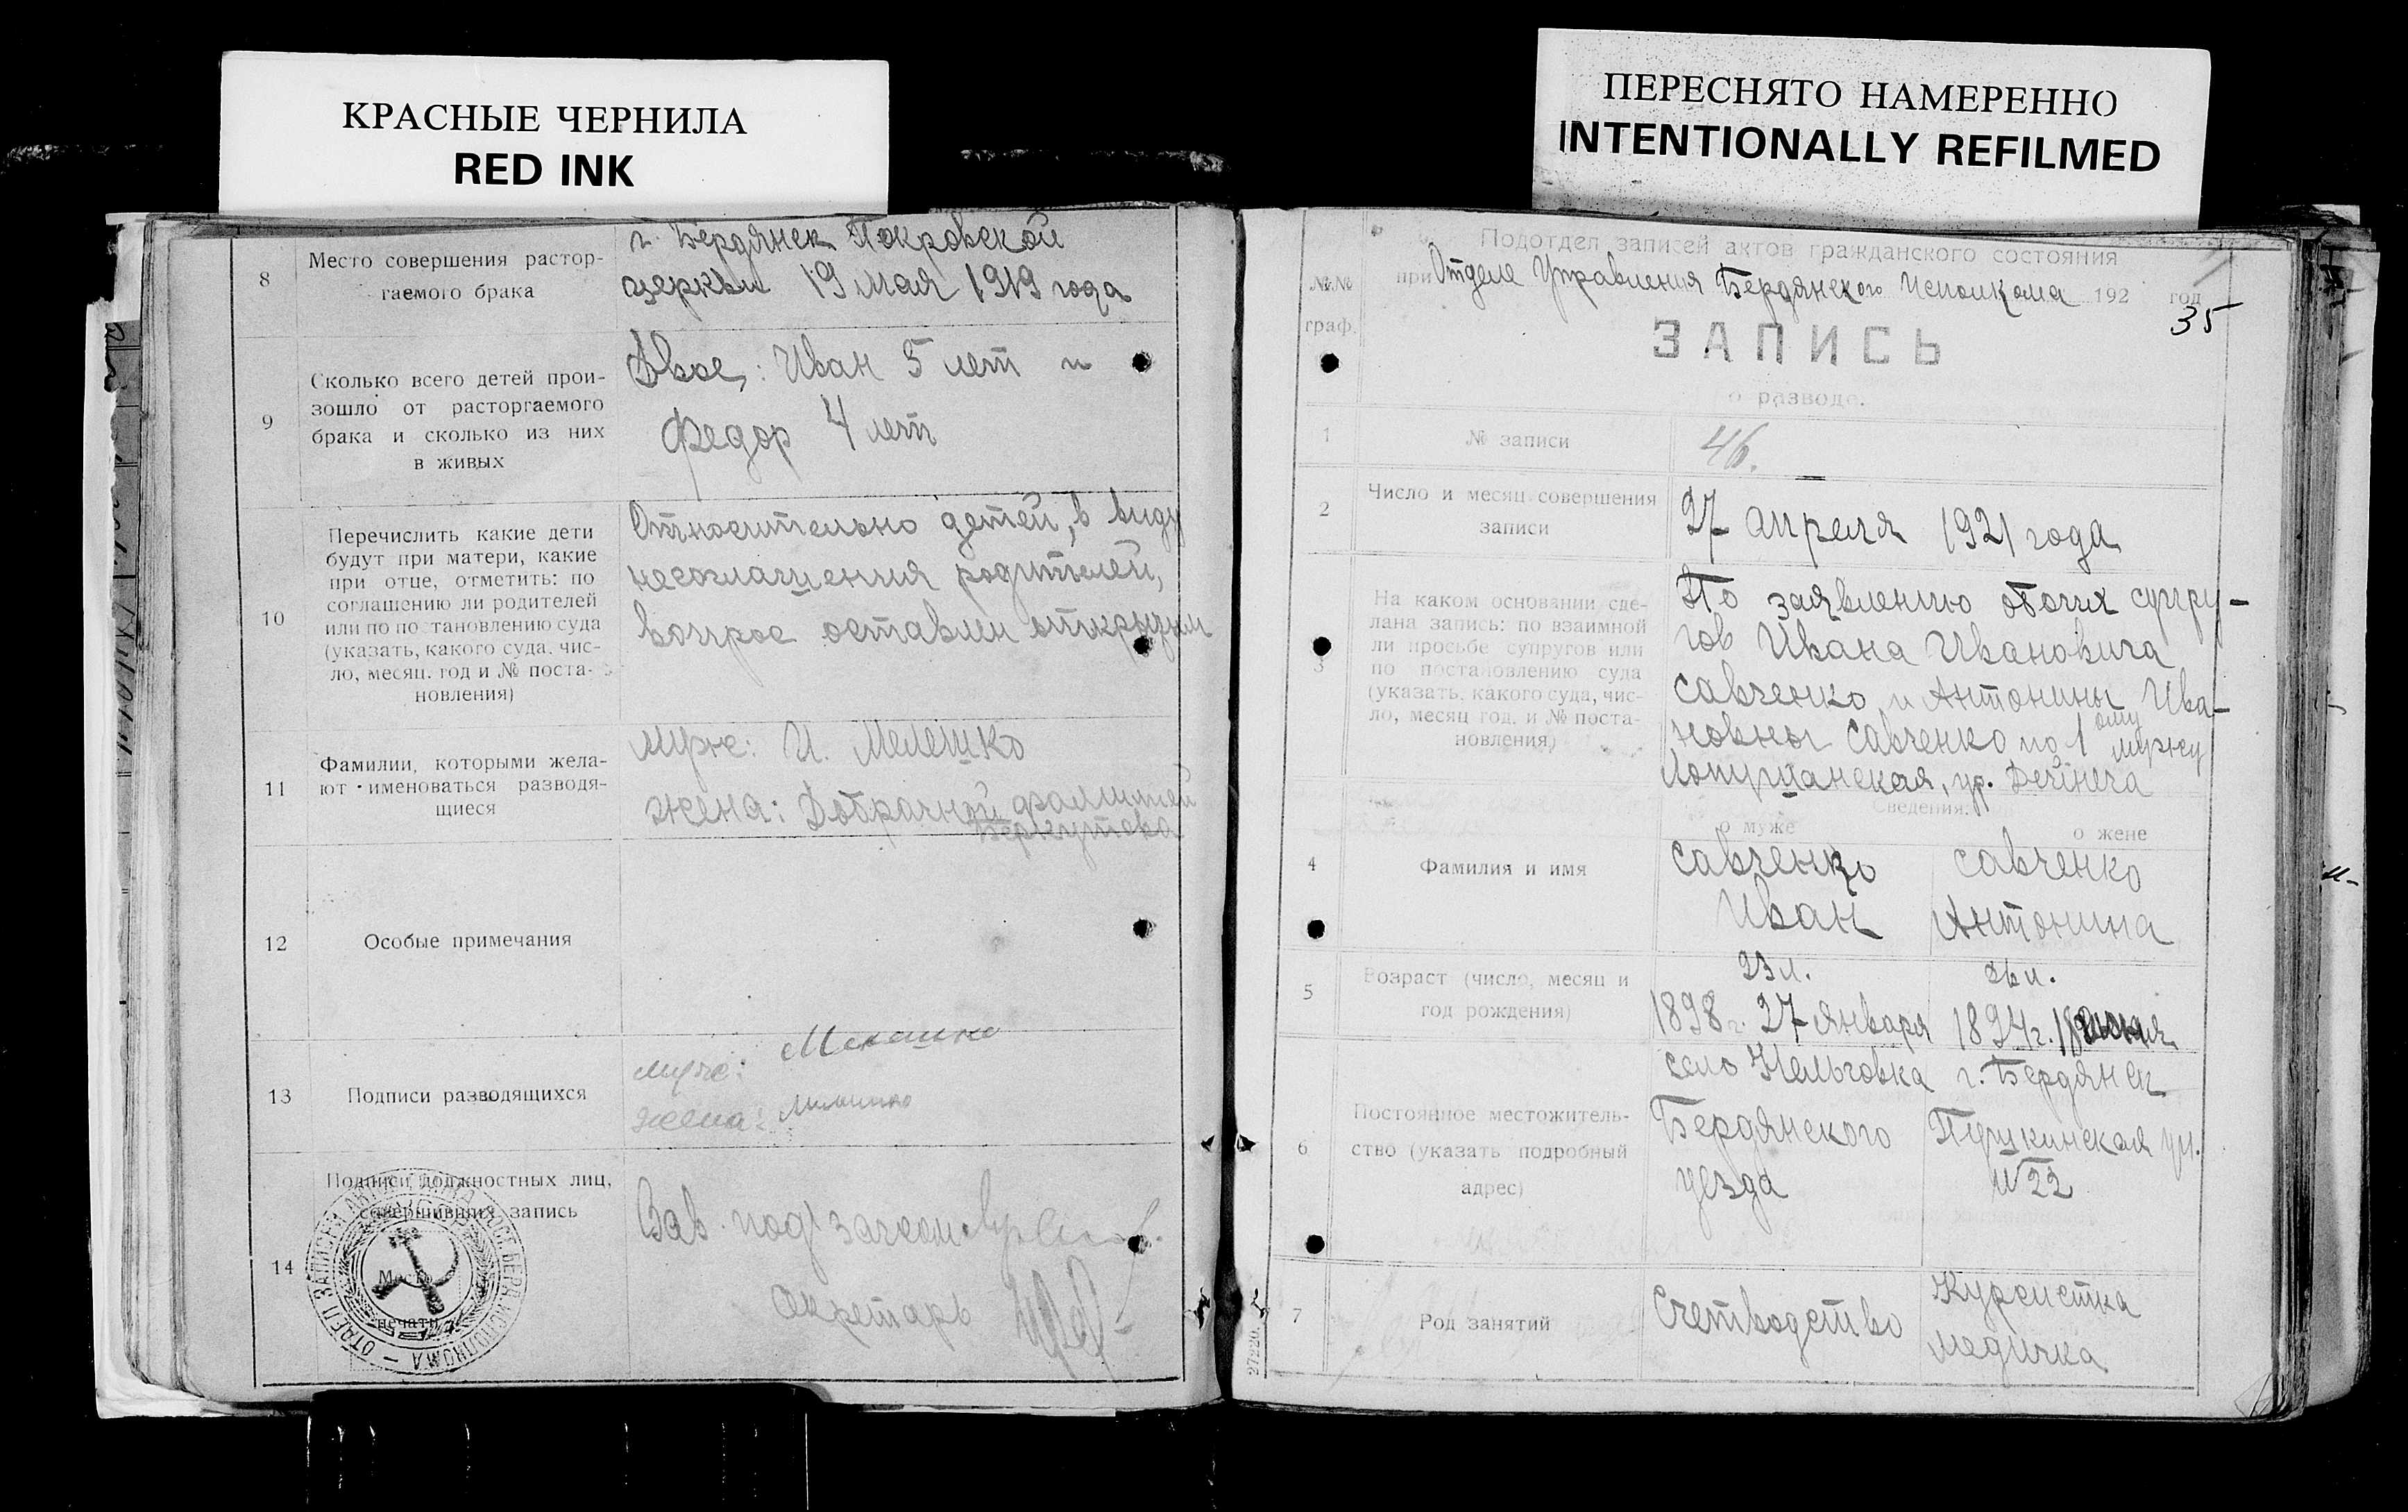 КРАСНЫЕ ЧЕРНИЛА
RED INK
ПЕРЕСНЯТО НАМЕРЕННО
INTENTIONALLY REFILMED
8
Место совершения растор-
гаемого брака
г. Бердянск Покровской
церкви 19 мая 1919 года
9
Сколько всего детей прои-
зошло от расторгаемого
брака и сколько из них
в живых
Двое: Иван 5 лет и
Федор 4 лет
10
Перечислить какие дети
будут при матери, какие
при отце, отметить: по
соглашению ли родителей
или по постановлению суда
(указать, какого суда, чис-
ло, месяц, год и № поста-
новления)
Относительно детей, в виду
несоглашения родителей,
вопрос оставлен открытым
11
Фамилии, которыми жела-
ют именоваться разводя-
щиеся
муж: И. Мелешко
жена: Добрачной фамилией
Беркутова
12
Особые примечания
13
Подписи разводящихся
муж: Мелешко
жена:
14
Подписи должностных лиц,
совершивших запись
Место
печати
Зав. под
Секретарь
Подотдел записей актов гражданского состояния
при Отделе Управления Бердянского Исполкома 192 год
35
№№
граф.
ЗАПИСЬ
о разводе.
1
№ записи
46.
2
Число и месяц совершения
записи
27 апреля 1921 года
3
На каком основании сде-
лана запись: по взаимной
ли просьбе супругов или
по постановлению суда
(указать, какого суда, чис-
ло, месяц год, и № поста-
новления)
По заявлению обоих супру-
гов Ивана Ивановича
Савченко и Антонины Ива-
новны Савченко по 1ому мужу
ур.
Сведения:
о муже
о жене
4
Фамилия и имя
Савченко
Иван
Савченко
Антонина
5
Возраст (число, месяц и
год рождения)
23 л.
1898 г. 27 января
26 л.
1894 г.
6
Постоянное местожитель-
ство (указать подробный
адрес)
село Нельговка
Бердянского
уезда
г. Бердянск
Пушкинская ул.
№ 22
7
Род занятий
Счетоводство
Курсистка
медичка
27220.